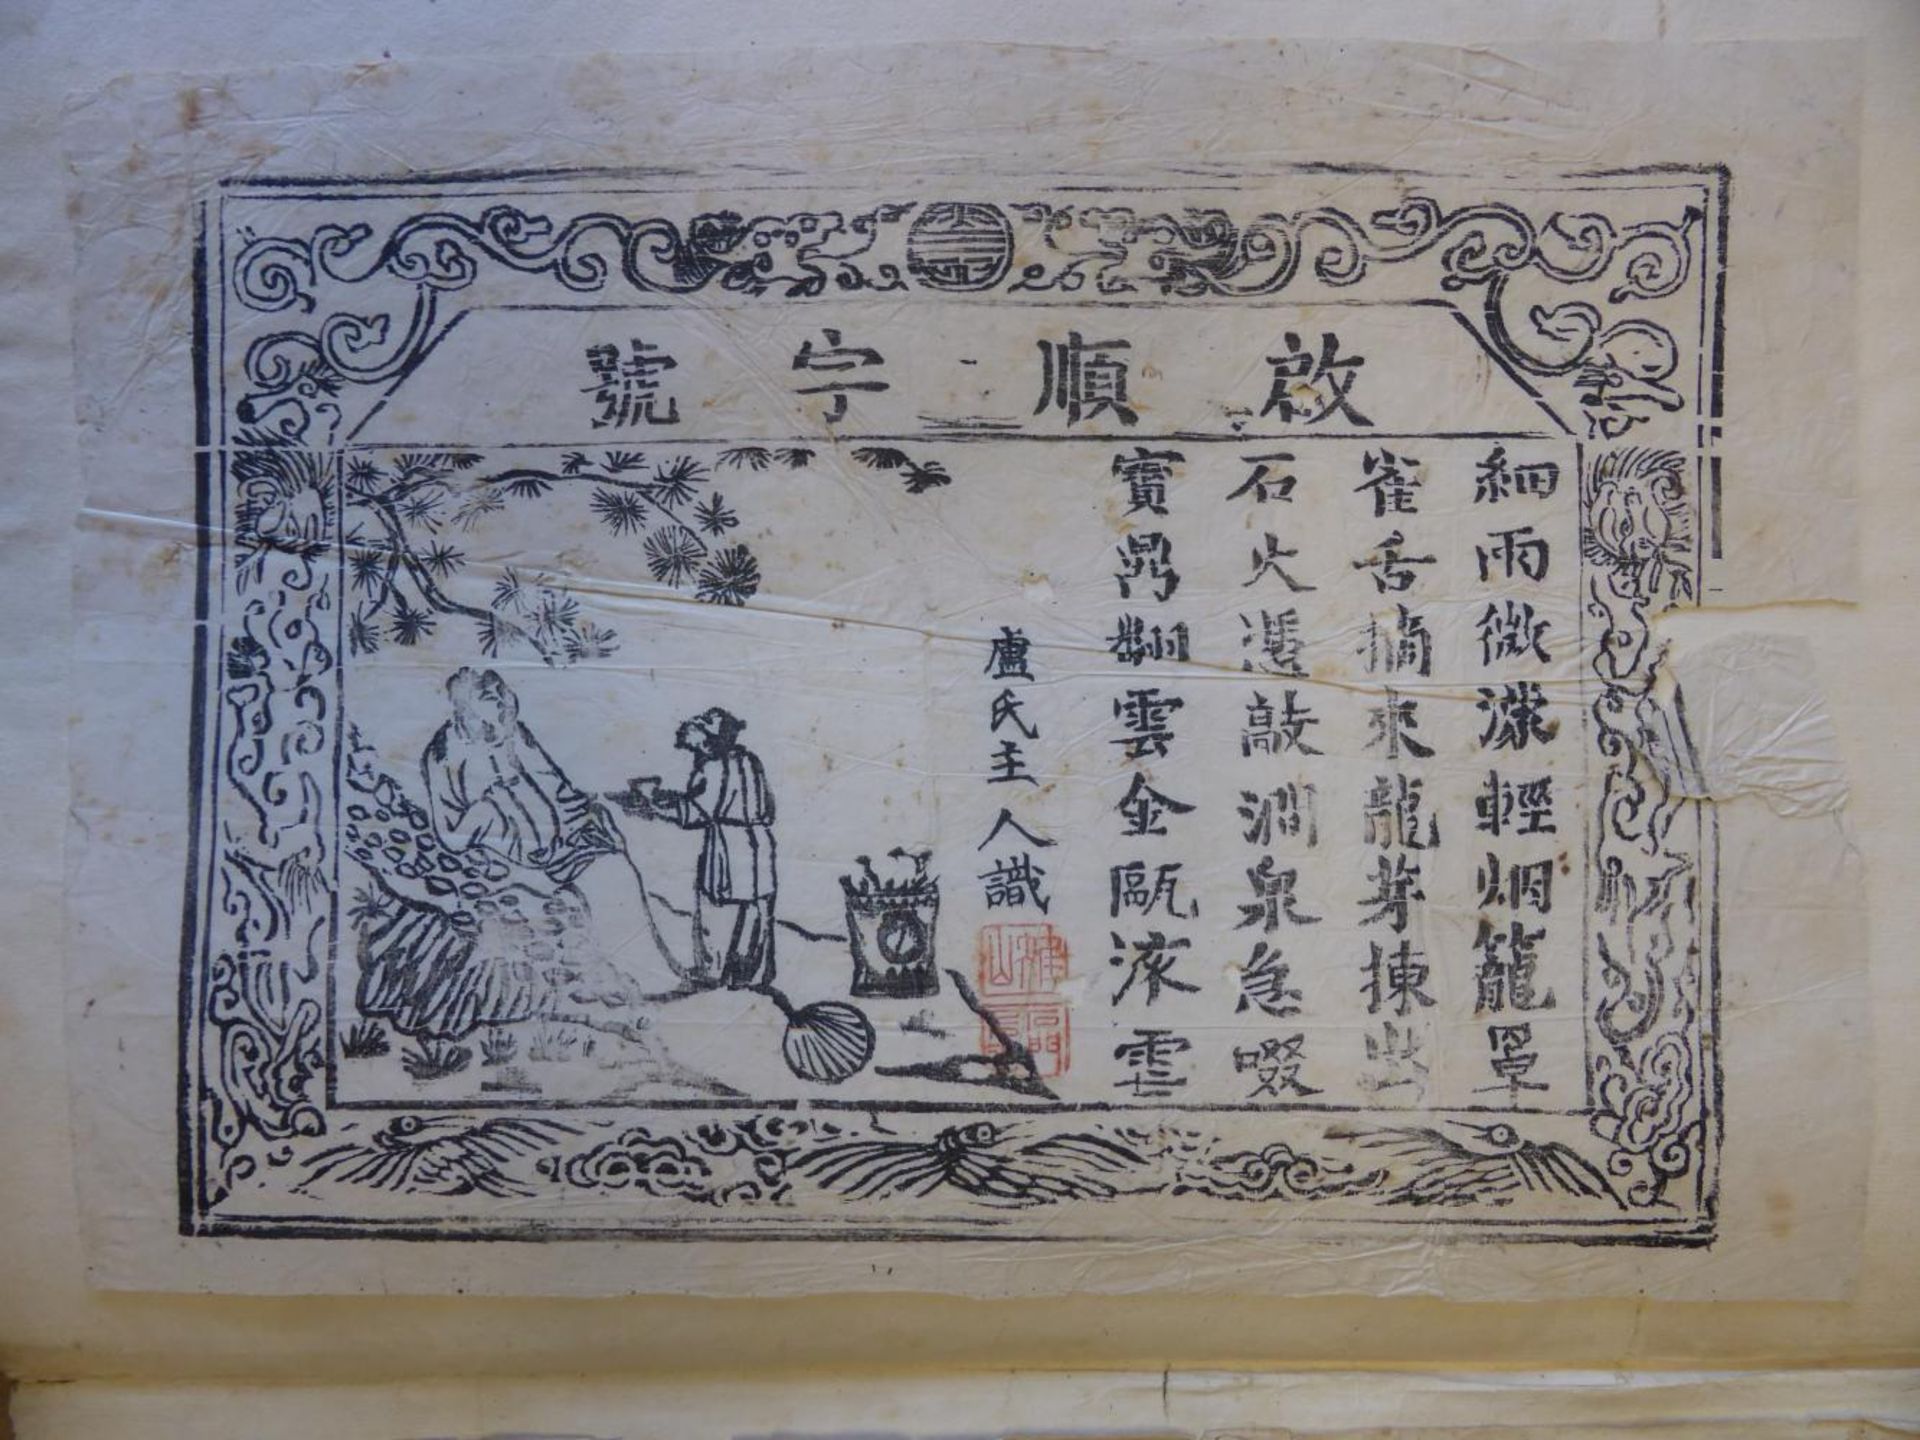 啟順字號
細雨微濛輕烟籠罩
雀舌摘來龍芽揀出
石火遥敲澗泉急啜
寳鼎翻雲金甌液雪
盧氏主人識